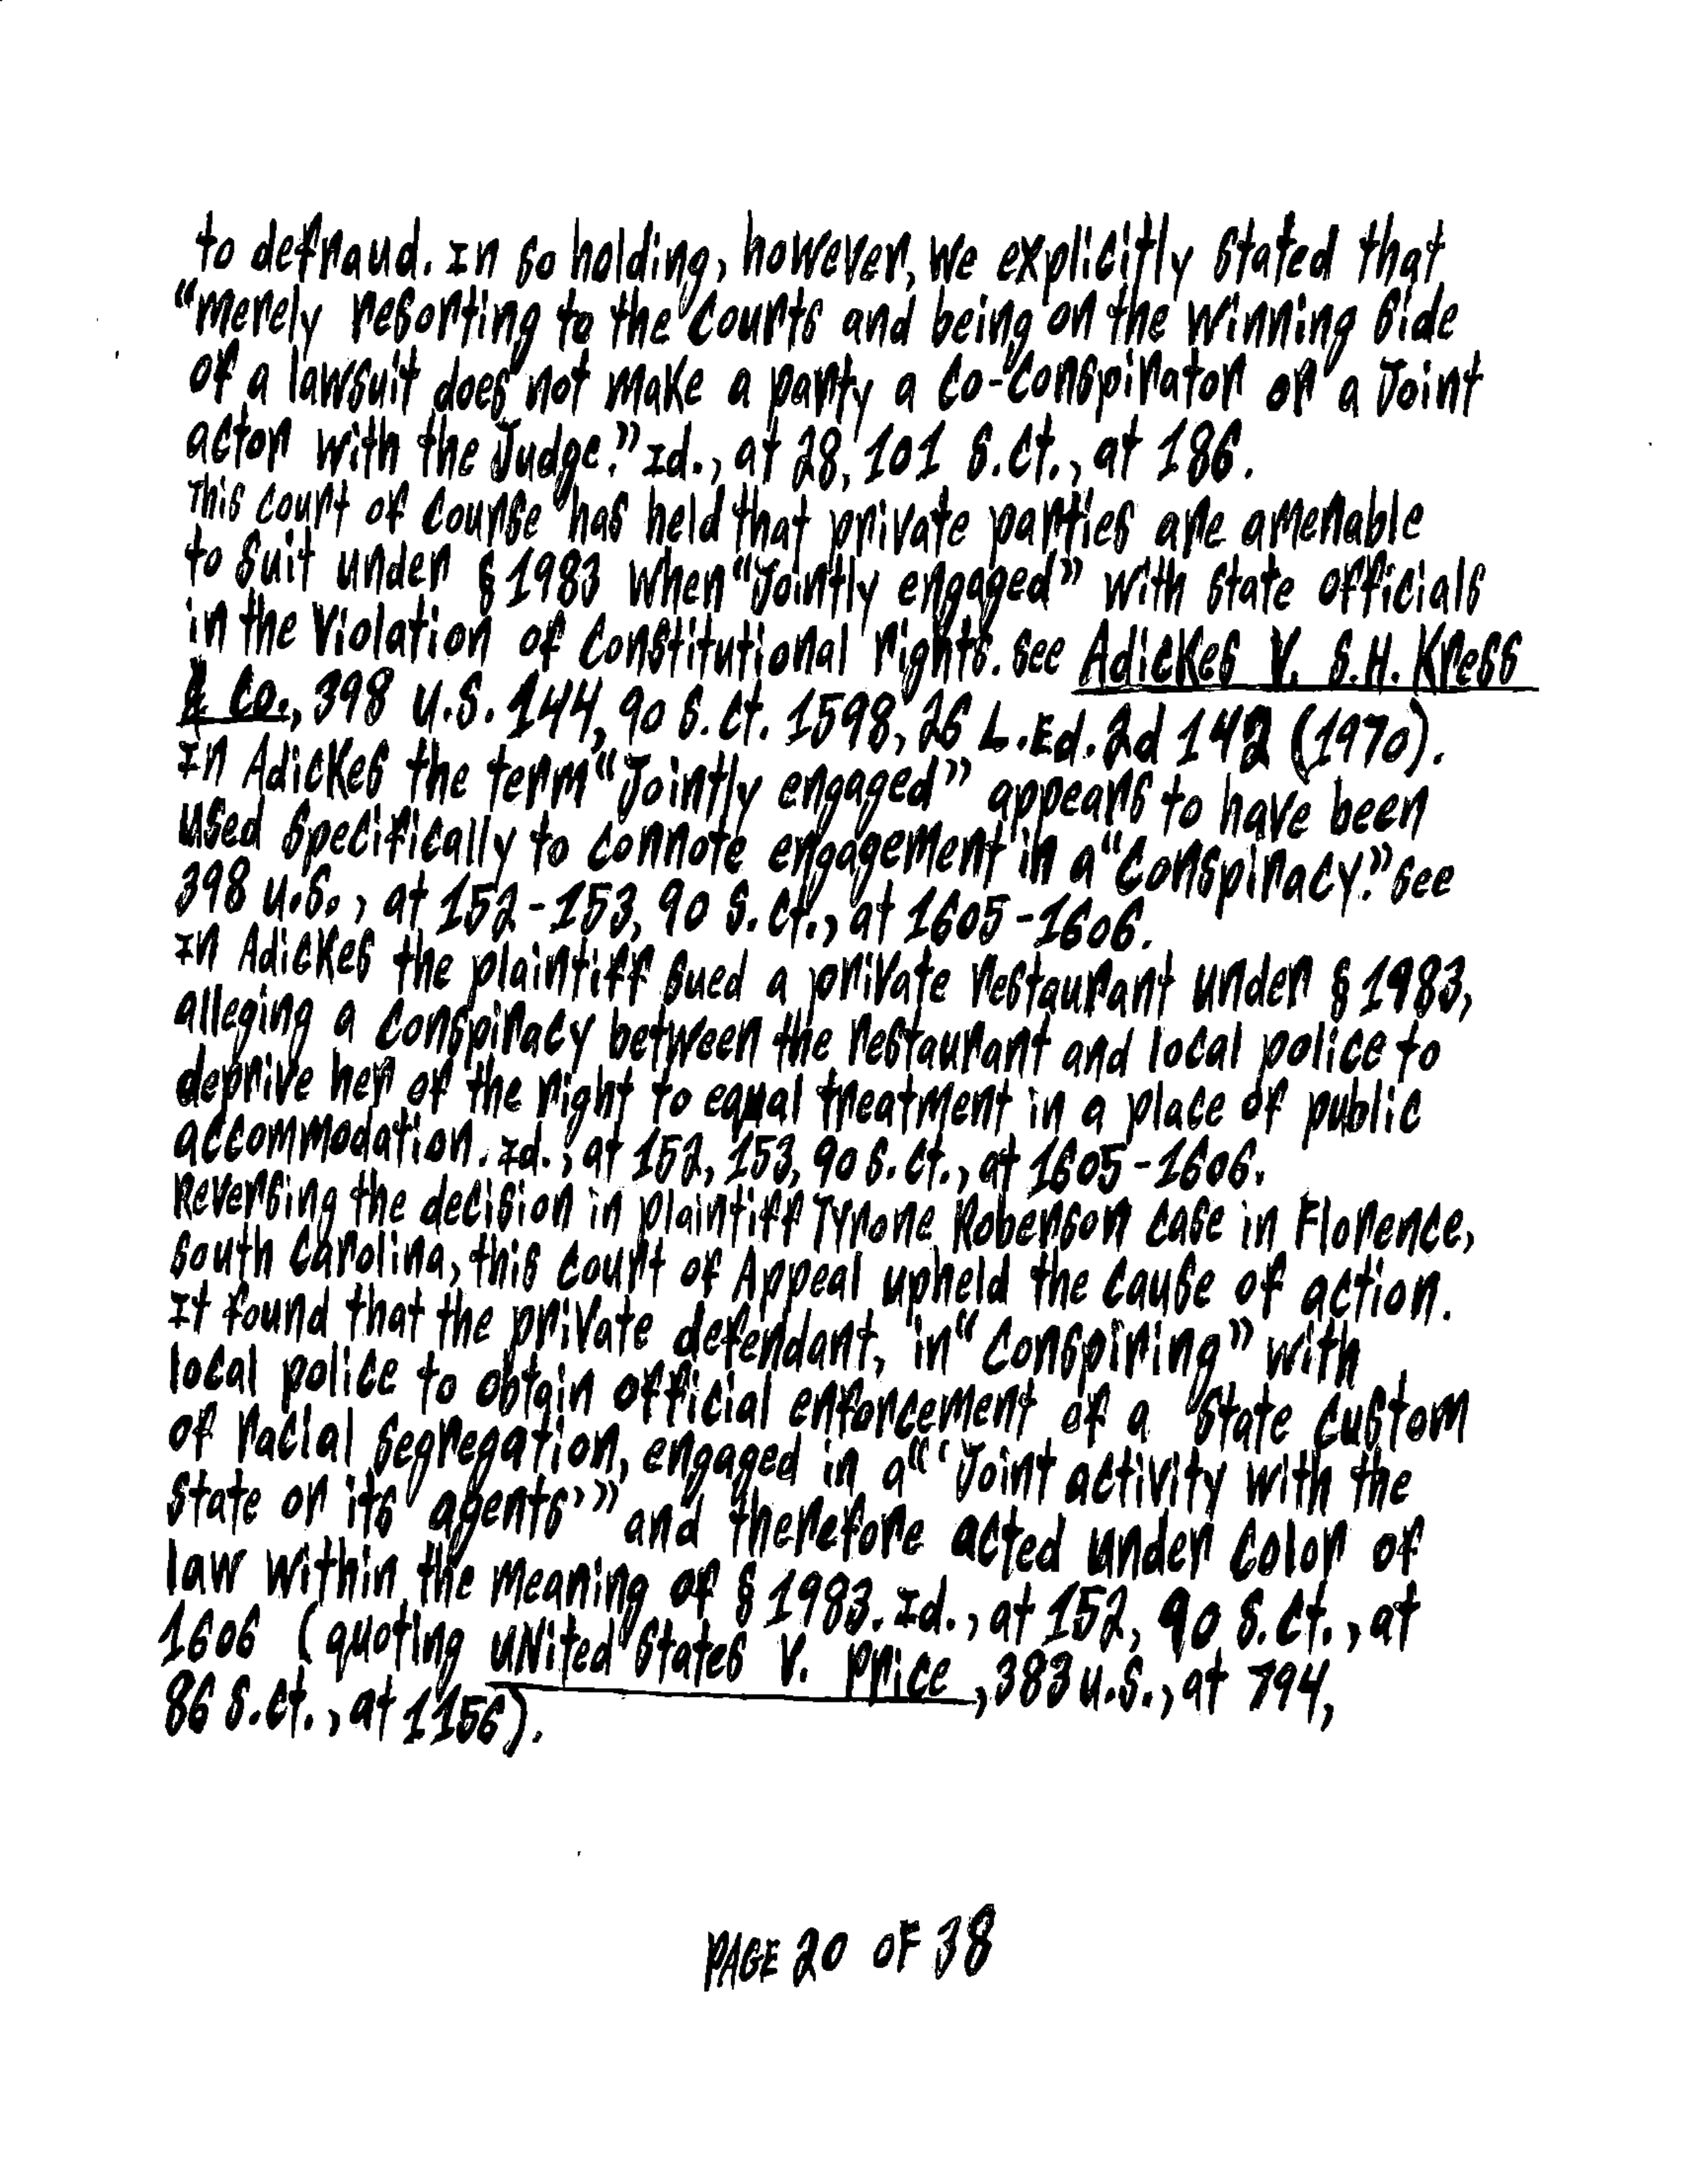 to defraud. In so holding, however, we explicitly stated that
"merely resorting to the courts and being on the winning side
of a lawsuit does not make a party a co-conspirator or a Joint
actor with the Judge." Id., at 28, 101 S.Ct., at 186.
This court of course has held that private parties are amenable
to suit under § 1983 when "Jointly engaged" with state officials
in the violation of constitutional rights. see Adickes V. S.H. Kress
& Co., 398 U.S. 144, 90 S.Ct. 1598, 26 L.Ed.2d 142 (1970).
In Adickes the term "Jointly engaged" appears to have been
used specifically to connote engagement in a "conspiracy." see
398 U.S., at 152-153, 90 S.Ct., at 1605-1606.
In Adickes the plaintiff sued a private restaurant under § 1983,
alleging a conspiracy between the restaurant and local police to
deprive her of the right to equal treatment in a place of public
accommodation. Id., at 152, 153, 90 S.Ct., at 1605-1606.
Reversing the decision in plaintiff Tyrone Roberson case in Florence,
South Carolina, this court of Appeal upheld the cause of action.
It found that the private defendant, in "conspiring" with
local police to obtain official enforcement of a state custom
of racial segregation, engaged in a "'Joint activity with the
state or its agents'" and therefore acted under color of
law within the meaning of § 1983. Id., at 152, 90 S.Ct., at
1606 (quoting United States V. Price, 383 U.S., at 794,
86 S.Ct., at 1156).
PAGE 20 OF 38